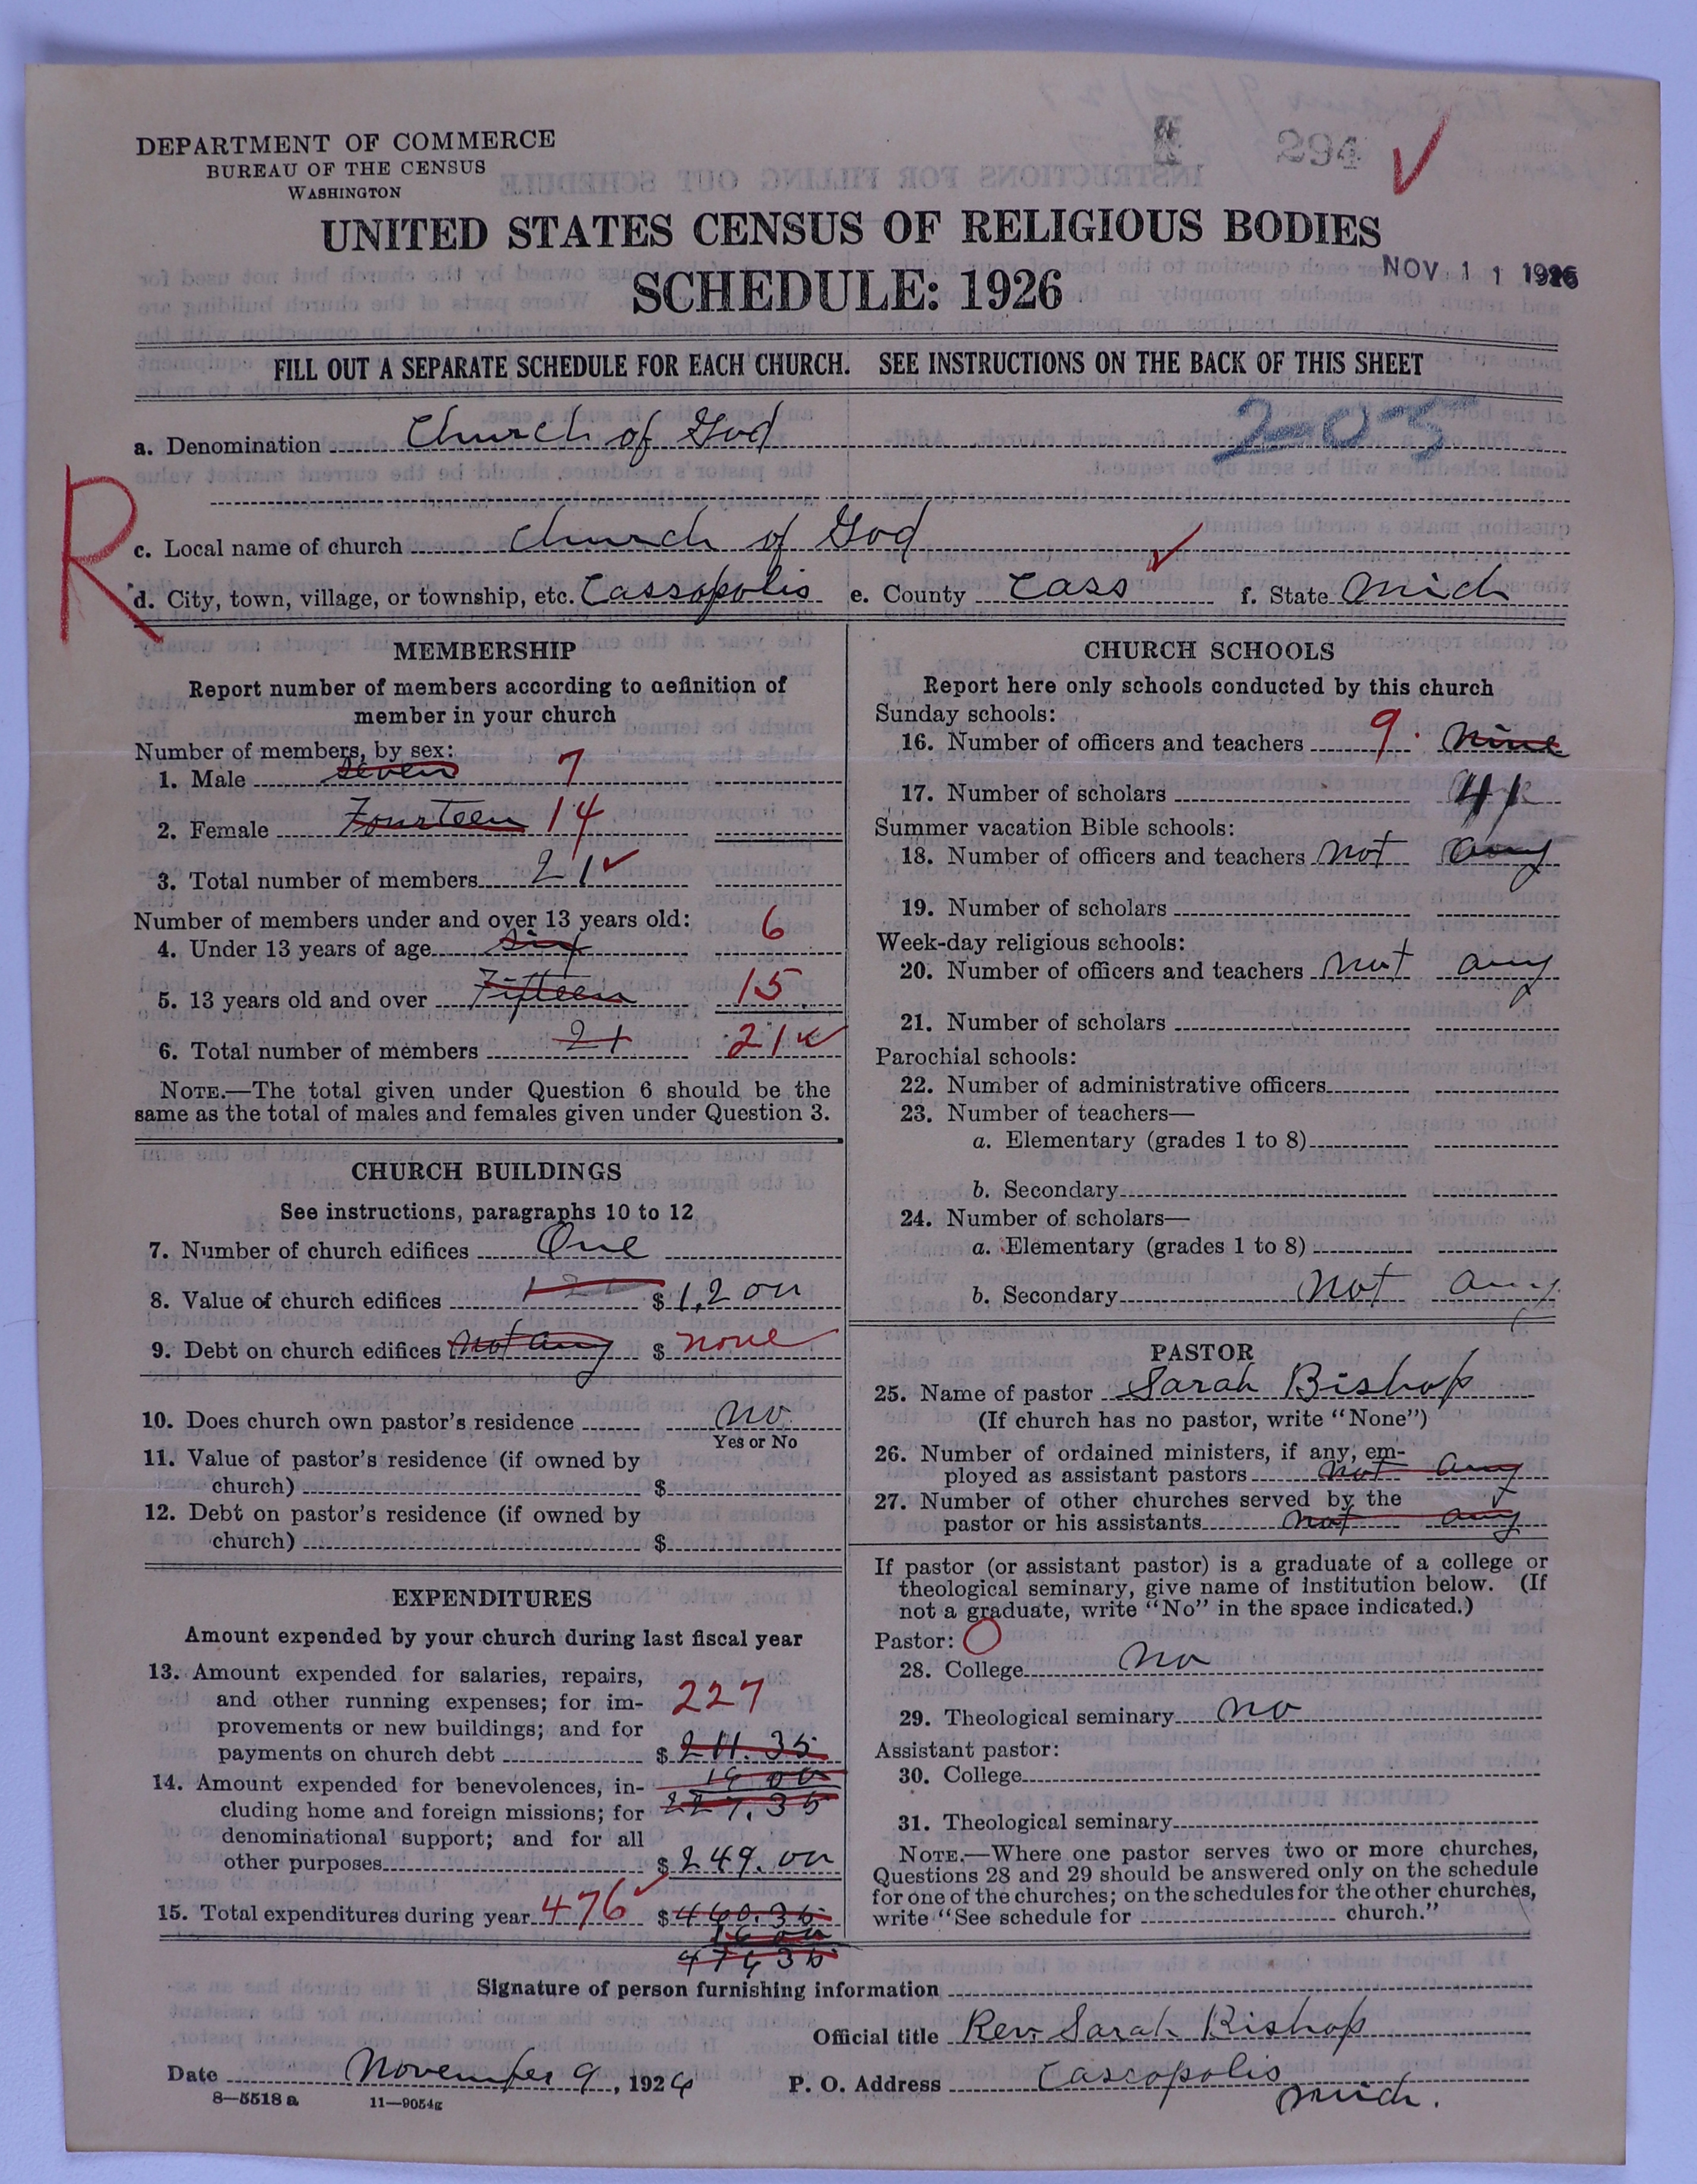 294
DEPARTMENT OF COMMERCE
BUREAU OF THE CENSUS
WASHINGTON
UNITED STATES CENSUS OF RELIGIOUS BODIES
SCHEDULE: 1926
NOV 11 1926
FILL OUT A SEPARATE SCHEDULE FOR EACH CHURCH. SEE INSTRUCTIONS ON THE BACK OF THIS SHEET
a. Denomination Church of God 2-05
R
c. Local name of church Church of God
d. City, town, village, or township, etc. Cassopolis e. County Cass f. State Mich
MEMBERSHIP
Report number of members according to definition of
member in your church
Number of members, by sex:
1. Male seven 7
2. Female Fourteen 14
3. Total number of members 21
Number of members under and over 13 years old:
4. Under 13 years of age six 6
5. 13 years old and over Fifteen 15
6. Total number of members 21 21
NOTE.—The total given under Question 6 should be the
same as the total of males and females given under Question 3.
CHURCH BUILDINGS
See instructions, paragraphs 10 to 12
7. Number of church edifices One
8. Value of church edifices $1,200
9. Debt on church edifices not any $ none
10. Does church own pastor's residence no
Yes or No
11. Value of pastor's residence (if owned by
church) $
12. Debt on pastor's residence (if owned by
church) $
EXPENDITURES
Amount expended by your church during last fiscal year
13. Amount expended for salaries, repairs,
and other running expenses; for im-
provements or new buildings; and for
payments on church debt $ 211.35
227
14. Amount expended for benevolences, in-
cluding home and foreign missions; for
denominational support; and for all
other purposes $ 249.00
227.35
15. Total expenditures during year 476 $ 460.35
CHURCH SCHOOLS
Report here only schools conducted by this church
Sunday schools:
16. Number of officers and teachers 9. Nine
17. Number of scholars 41
Summer vacation Bible schools:
18. Number of officers and teachers not any
19. Number of scholars
Week-day religious schools:
20. Number of officers and teachers not any
21. Number of scholars
Parochial schools:
22. Number of administrative officers
23. Number of teachers—
a. Elementary (grades 1 to 8)
b. Secondary
24. Number of scholars—
a. Elementary (grades 1 to 8)
b. Secondary not any
PASTOR
25. Name of pastor Sarah Bishop
(If church has no pastor, write "None")
26. Number of ordained ministers, if any, em-
ployed as assistant pastors not any
27. Number of other churches served by the
pastor or his assistants not any
If pastor (or assistant pastor) is a graduate of a college or
theological seminary, give name of institution below. (If
not a graduate, write "No" in the space indicated.)
Pastor: O
28. College no
29. Theological seminary no
Assistant pastor:
30. College
31. Theological seminary
NOTE.—Where one pastor serves two or more churches,
Questions 28 and 29 should be answered only on the schedule
for one of the churches; on the schedules for the other churches,
write "See schedule for church."
Signature of person furnishing information
Official title Rev. Sarah Bishop
Date November 9, 1926 P. O. Address Cascopolis
Mich.
8—5518 a 11—9054g